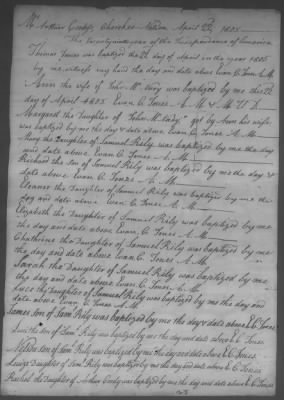 Cherokee Nation April 22, 1805
The twenty ninth year of the Independance of America
Thomas Jones was baptized the 22 day of April in the year 1805
by me, witness my hand the day and date above Evan C. Jones A. M.
Ann the wife of John Mc tady was baptized by me this 22
day of April 1805. Evan C. Jones A. M. & M. U. D.
Margaret the daughter of John Mc tady got by Ann his wife
was baptized by me the day and date above Evan C. Jones A. M.
Mary the Daughter of Samuel Riely was baptized by me the day
and date above Evan C. Jones A. M.
Richard the son of Samuel Riely was baptized by me the day &
date above Evan C. Jones A. M.
Eleanor the Daughter of Samuel Riely was baptized by me the
day and date above Evan C. Jones A. M.
Elizabeth the Daughter of Samuel Riely was baptized by me
the day and date above Evan C. Jones A. M.
Chatherine the Daughter of Samuel Riely was baptized by me
the day and date above Evan C. Jones A. M.
Sarah the Daughter of Samuel Riely was baptized by me
the day and date above Evan C. Jones A. M.
the Daughter of Samuel Riely was baptized by me the day and
date above Evan C. Jones A. M.
James son of Saml Riely was baptized by me the day & date above E. C. Jones
the son of Saml Riely was baptized by me the day and date above E. C. Jones
Nelson son of Saml Riely was baptized by me the day and date above E. C. Jones
Daughter of Saml Riely was baptized by me the day and date above E. C. Jones
Rachel the daughter of was baptized by me the day and date above E. C. Jones